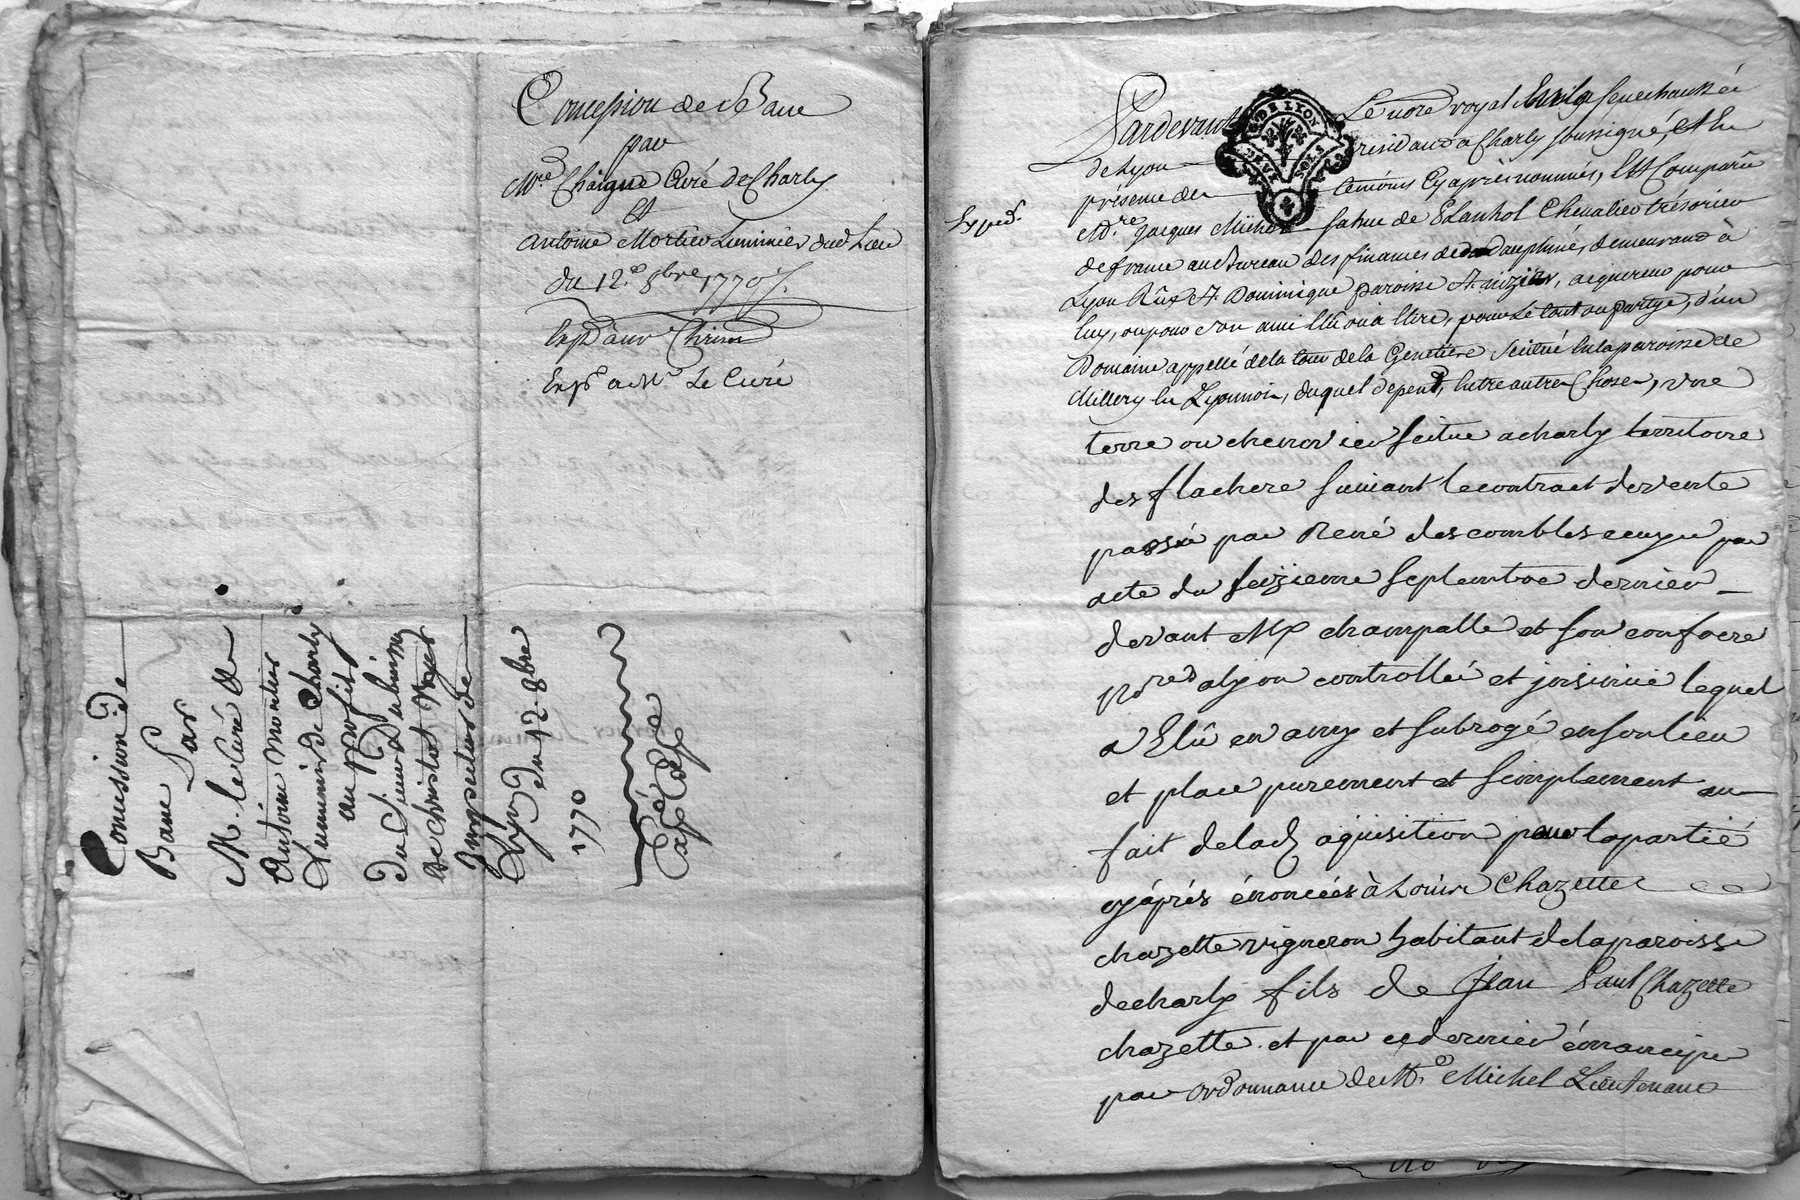 Concession de Banc
par
Mre Chaigne Curé de Charly
et
antoine Mortier Luminier dud. Lieu
du 12e. 8bre 1770.
Exp.
Exp. a Mr. Le Curé
Concession de
Banc Par
M. le Curé de
Antoine Mortier
Luminier de Charly
au Profit
du Sieur
de Christot
Du 12 8bre
1770
Expéd.
G. DE LYON
DEUX SOLS
Pardevant Le nore royal En la Senechaussée
de Lyon résidant à Charly soussigné, Et En
présence des témoins Cy après nommés, Est Comparu
Mre. Jacques Michel de Chevalier trésorier
de france au Bureau des finances de dauphiné, demeurand à
Lyon Rüe St. Dominique paroisse St. nizier, acquereur pour
luy, ou pour son ami Elû ou à Elire, pour Le tout ou partye, d'un
Domaine appellé de la tour de la Genetiere Scitué En la paroisse de
Millery En Lyonnois, duquel depend, Entre autres Choses, une
terre ou chenevier scitue a charly territoire
des flachere suivant le contract de vente
passé par René descombles ecuyer par
acte du seizieme septembre dernier
devant Me champalle et son confrere
nores a lyon controllé et insinué lequel
a Elû en amy et subrogé en son lieu
et place purement et simplement au
fait de lad. aquisition pour la partie
cy áprés énoncées à Loüis Chazette
chazette vigneron habitant de la paroisse
de charly fils de Jean Paul Chazette
chazette et par ce dernier émancipe
par ordonnance de Mre Michel Lieutenant